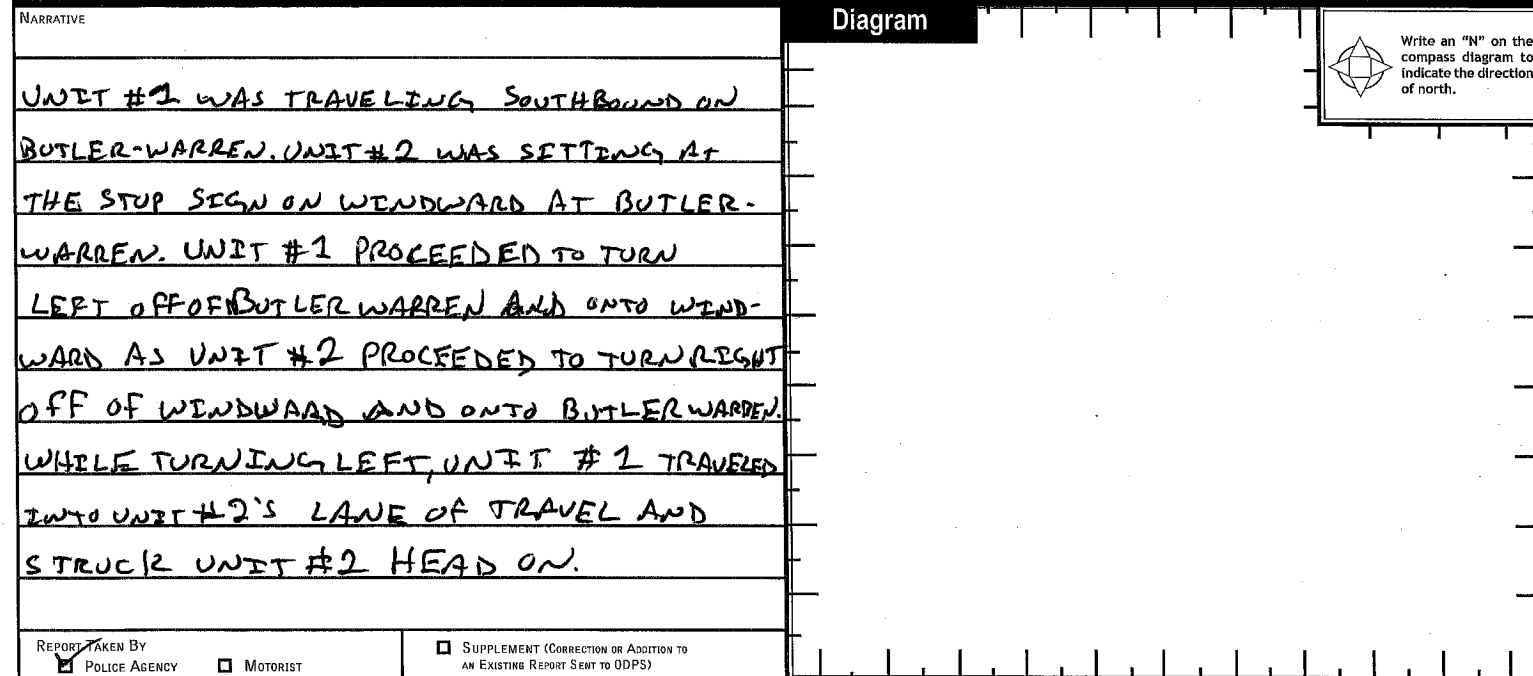 NARRATIVE
UNIT #1 WAS TRAVELING SOUTHBOUND ON
BUTLER-WARREN. UNIT #2 WAS SETTING AT
THE STOP SIGN ON WINDWARD AT BUTLER-
WARREN. UNIT #1 PROCEEDED TO TURN
LEFT OFF OF BUTLER WARREN AND ONTO WIND-
WARD AS UNIT #2 PROCEEDED TO TURN RIGHT
OFF OF WINDWARD AND ONTO BUTLER WARREN.
WHILE TURNING LEFT, UNIT #1 TRAVELED
INTO UNIT #2'S LANE OF TRAVEL AND
STRUCK UNIT #2 HEAD ON.
REPORT TAKEN BY
POLICE AGENCY MOTORIST
SUPPLEMENT (CORRECTION OR ADDITION TO
AN EXISTING REPORT SENT TO ODPS)
Diagram
Write an "N" on the
compass diagram to
indicate the direction
of north.